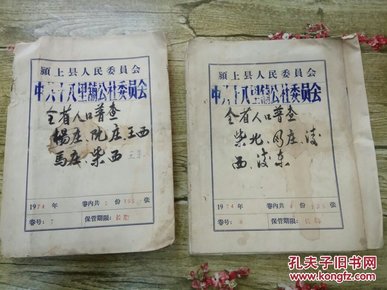 颍上县人民委员会
中共十八里铺公社委员会
全省人口普查
杨庄、阮庄、王西
马庄、柴西
1974年 卷内共 份 张
卷号：7 保管期限：长期
颍上县人民委员会
中共十八里铺公社委员会
全省人口普查
柴北、周庄、凌
西、凌东
1974年 卷内共 份 张
卷号： 保管期限：长期
孔夫子旧书网